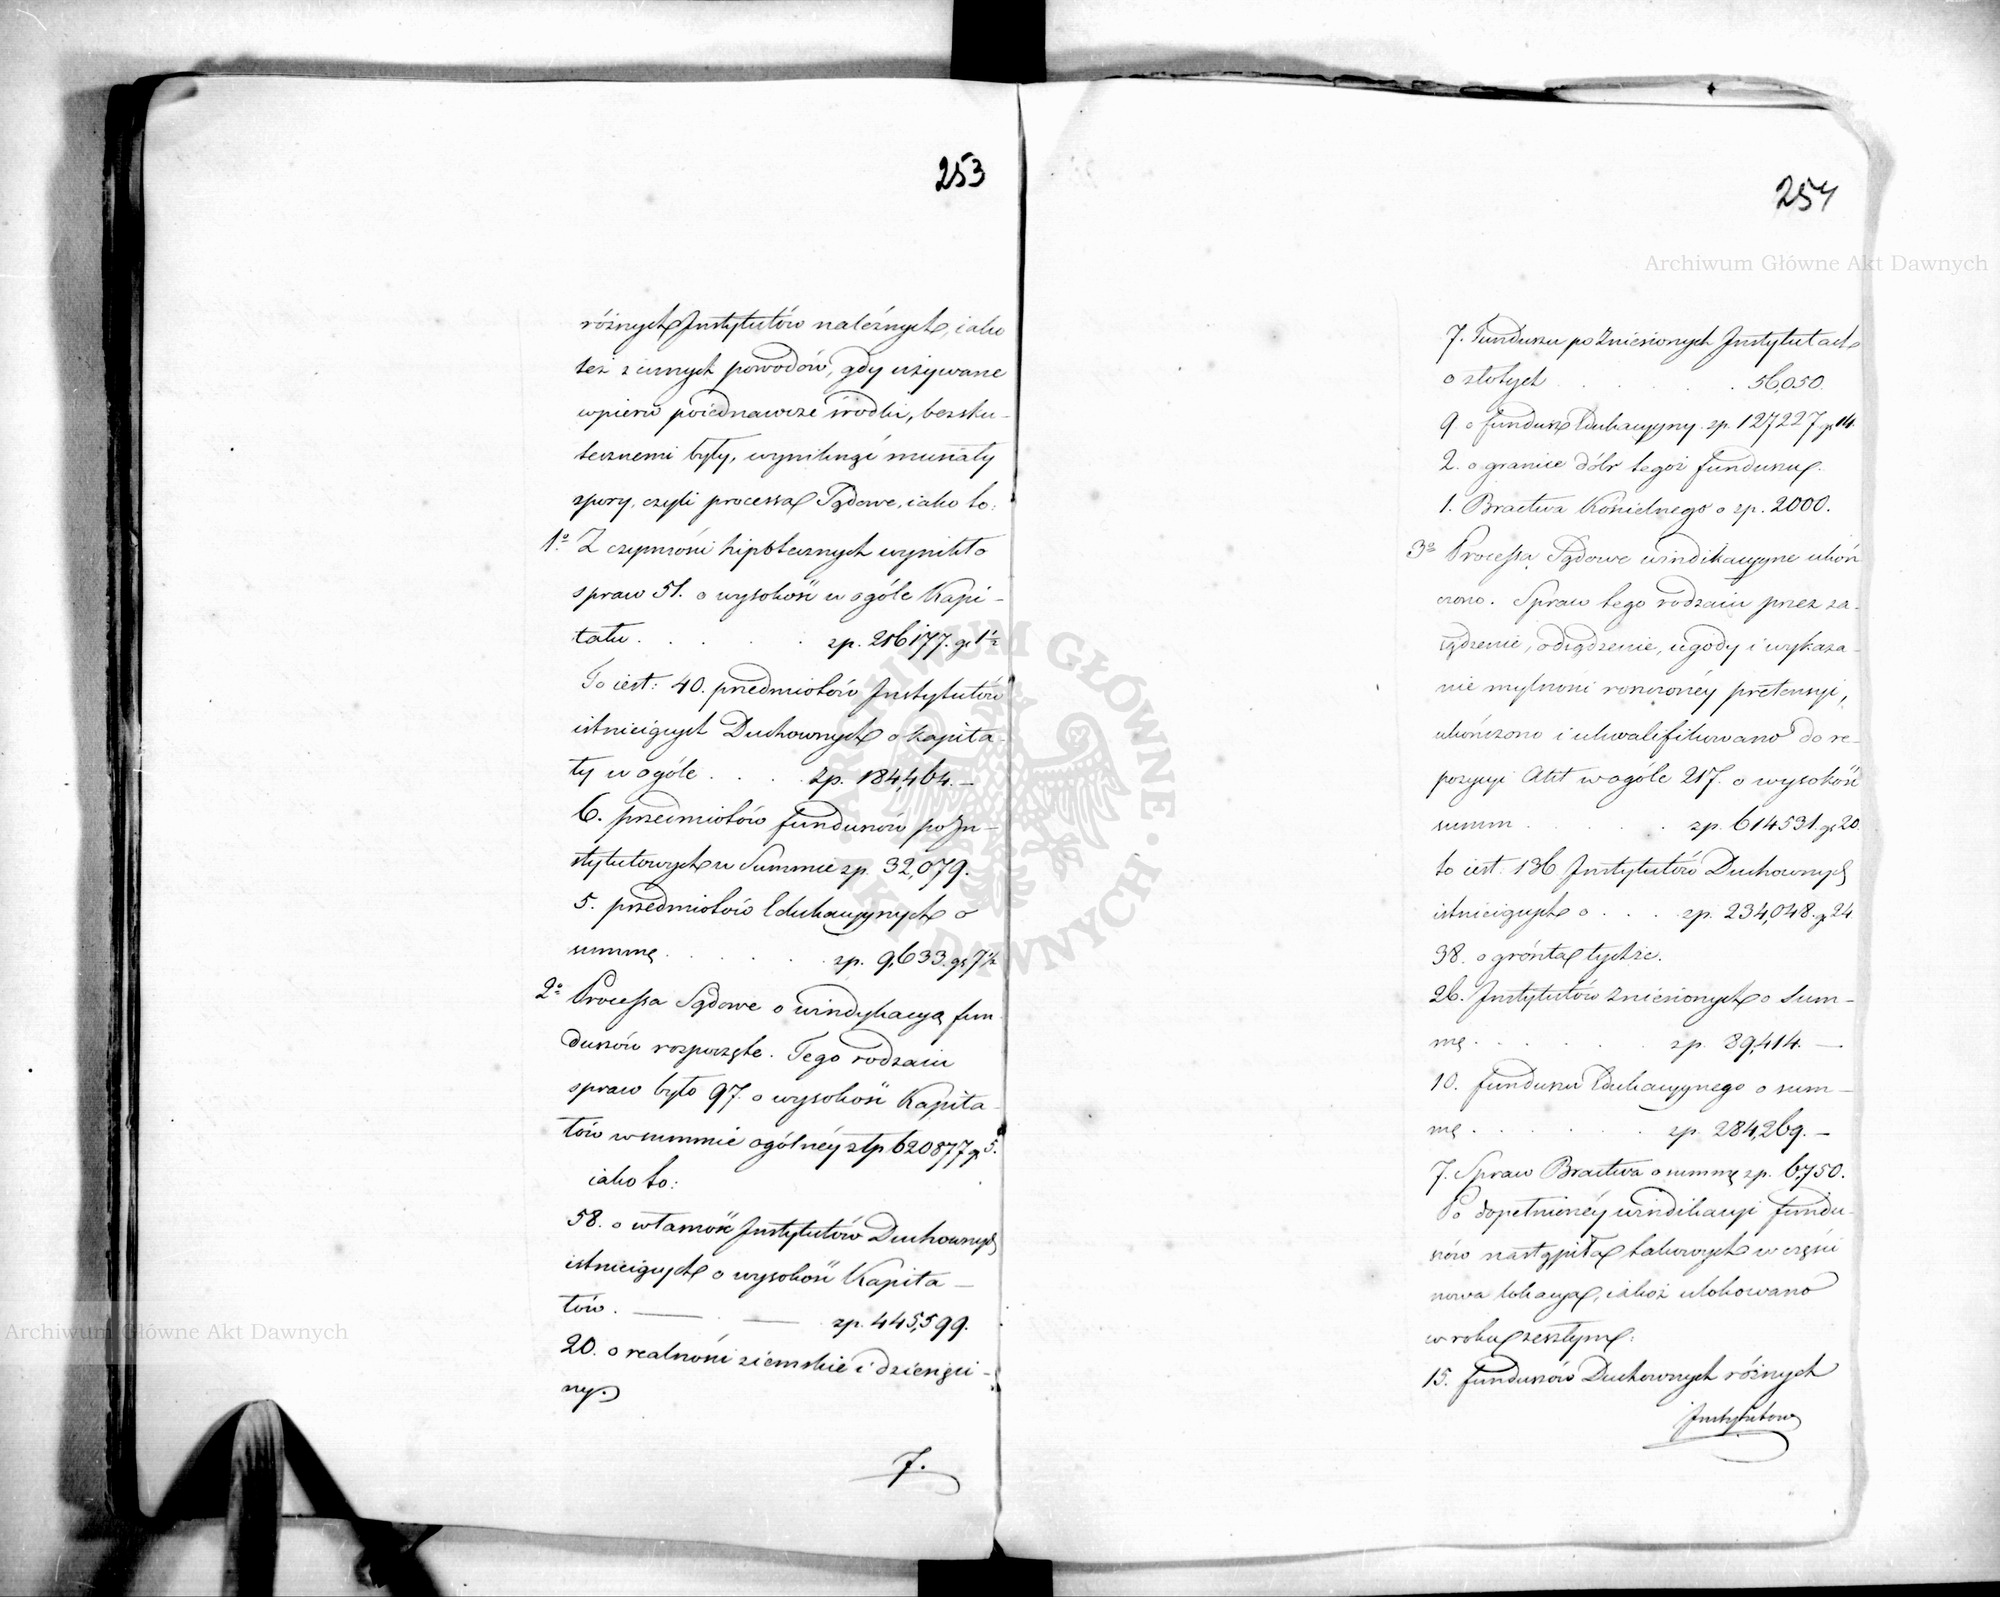 253
różnych Instytutów należnych, iako
też z innych powodów, gdy używane
wpierw poiednawcze środki, bezsku-
tecznemi były, wyniknąć musiały
spory, czyli processa Sądowe, iako to:
1o Z czynności hipotecznych wynikło
spraw 51. o wysokość w ogóle Kapi-
tału . . . . . zp. 216177. gr 1½
To iest: 40. przedmiotów Instytutów
istnieiących Duchownych o kapita-
ły w ogóle . . . . zp. 184,464.—
6. przedmiotów funduszów po In-
stytutowych w Summie zp. 32,079.
5. przedmiotów Edukacyjnych o
summę . . . . . . zp. 9,633. gr 7½
2o Processa Sądowe o windykacyą fun-
duszów rozpoczęte. Tego rodzaiu
spraw było 97. o wysokość Kapita-
łów w summie ogólnéy złp 620877 gr 5.
iako to:
58. o własność Instytutów Duchownych
istnieiących o wysokość Kapita-
łów . — . — zp. 445,599.
20. o realności ziemskie i dziesięci-
ny.
7.
254
Archiwum Główne Akt Dawnych
7. Funduszu po Zniesionych Instytutach
o złotych . . . . . . 56,050.
9. o fundusz Edukacyjny zp. 127227 gr 14.
2. o granice dóbr tegoż funduszu.
1. Bractwa Kościelnego o zp. 2000.
3o Processa Sądowe windikacyjne ukoń
czono. Spraw tego rodzaiu przez za-
sądzenie, odsądzenie, ugody i wykaza-
nie mylności roszczonéy pretensyi,
ukończono i ukwalifikowano do re-
pozycyi Akt w ogóle 217. o wysokość
summ . . . . . zp. 614531. gr 20.
to iest: 136 Instytutów Duchownych
istnieiących o . . . . zp. 234,048. gr 24
38. o grónta tychże.
26. Instytutów zniesionych o Sum-
mę . . . . . . zp. 89,414. —
10. funduszu Edukacyjnego o sum-
mę . . . . . . zp. 284,269. —
7. Spraw Bractwa o summę zp. 6,750.
Po dopełnionéy windikacyi fundu-
szów nastąpiła takowych w części
nowa lokacya, iakoż ulokowano
w roku zeszłym:
15. funduszów Duchownych różnych
Instytutów
Archiwum Główne Akt Dawnych
ARCHIWUM GŁÓWNE · AKT DAWNYCH ·